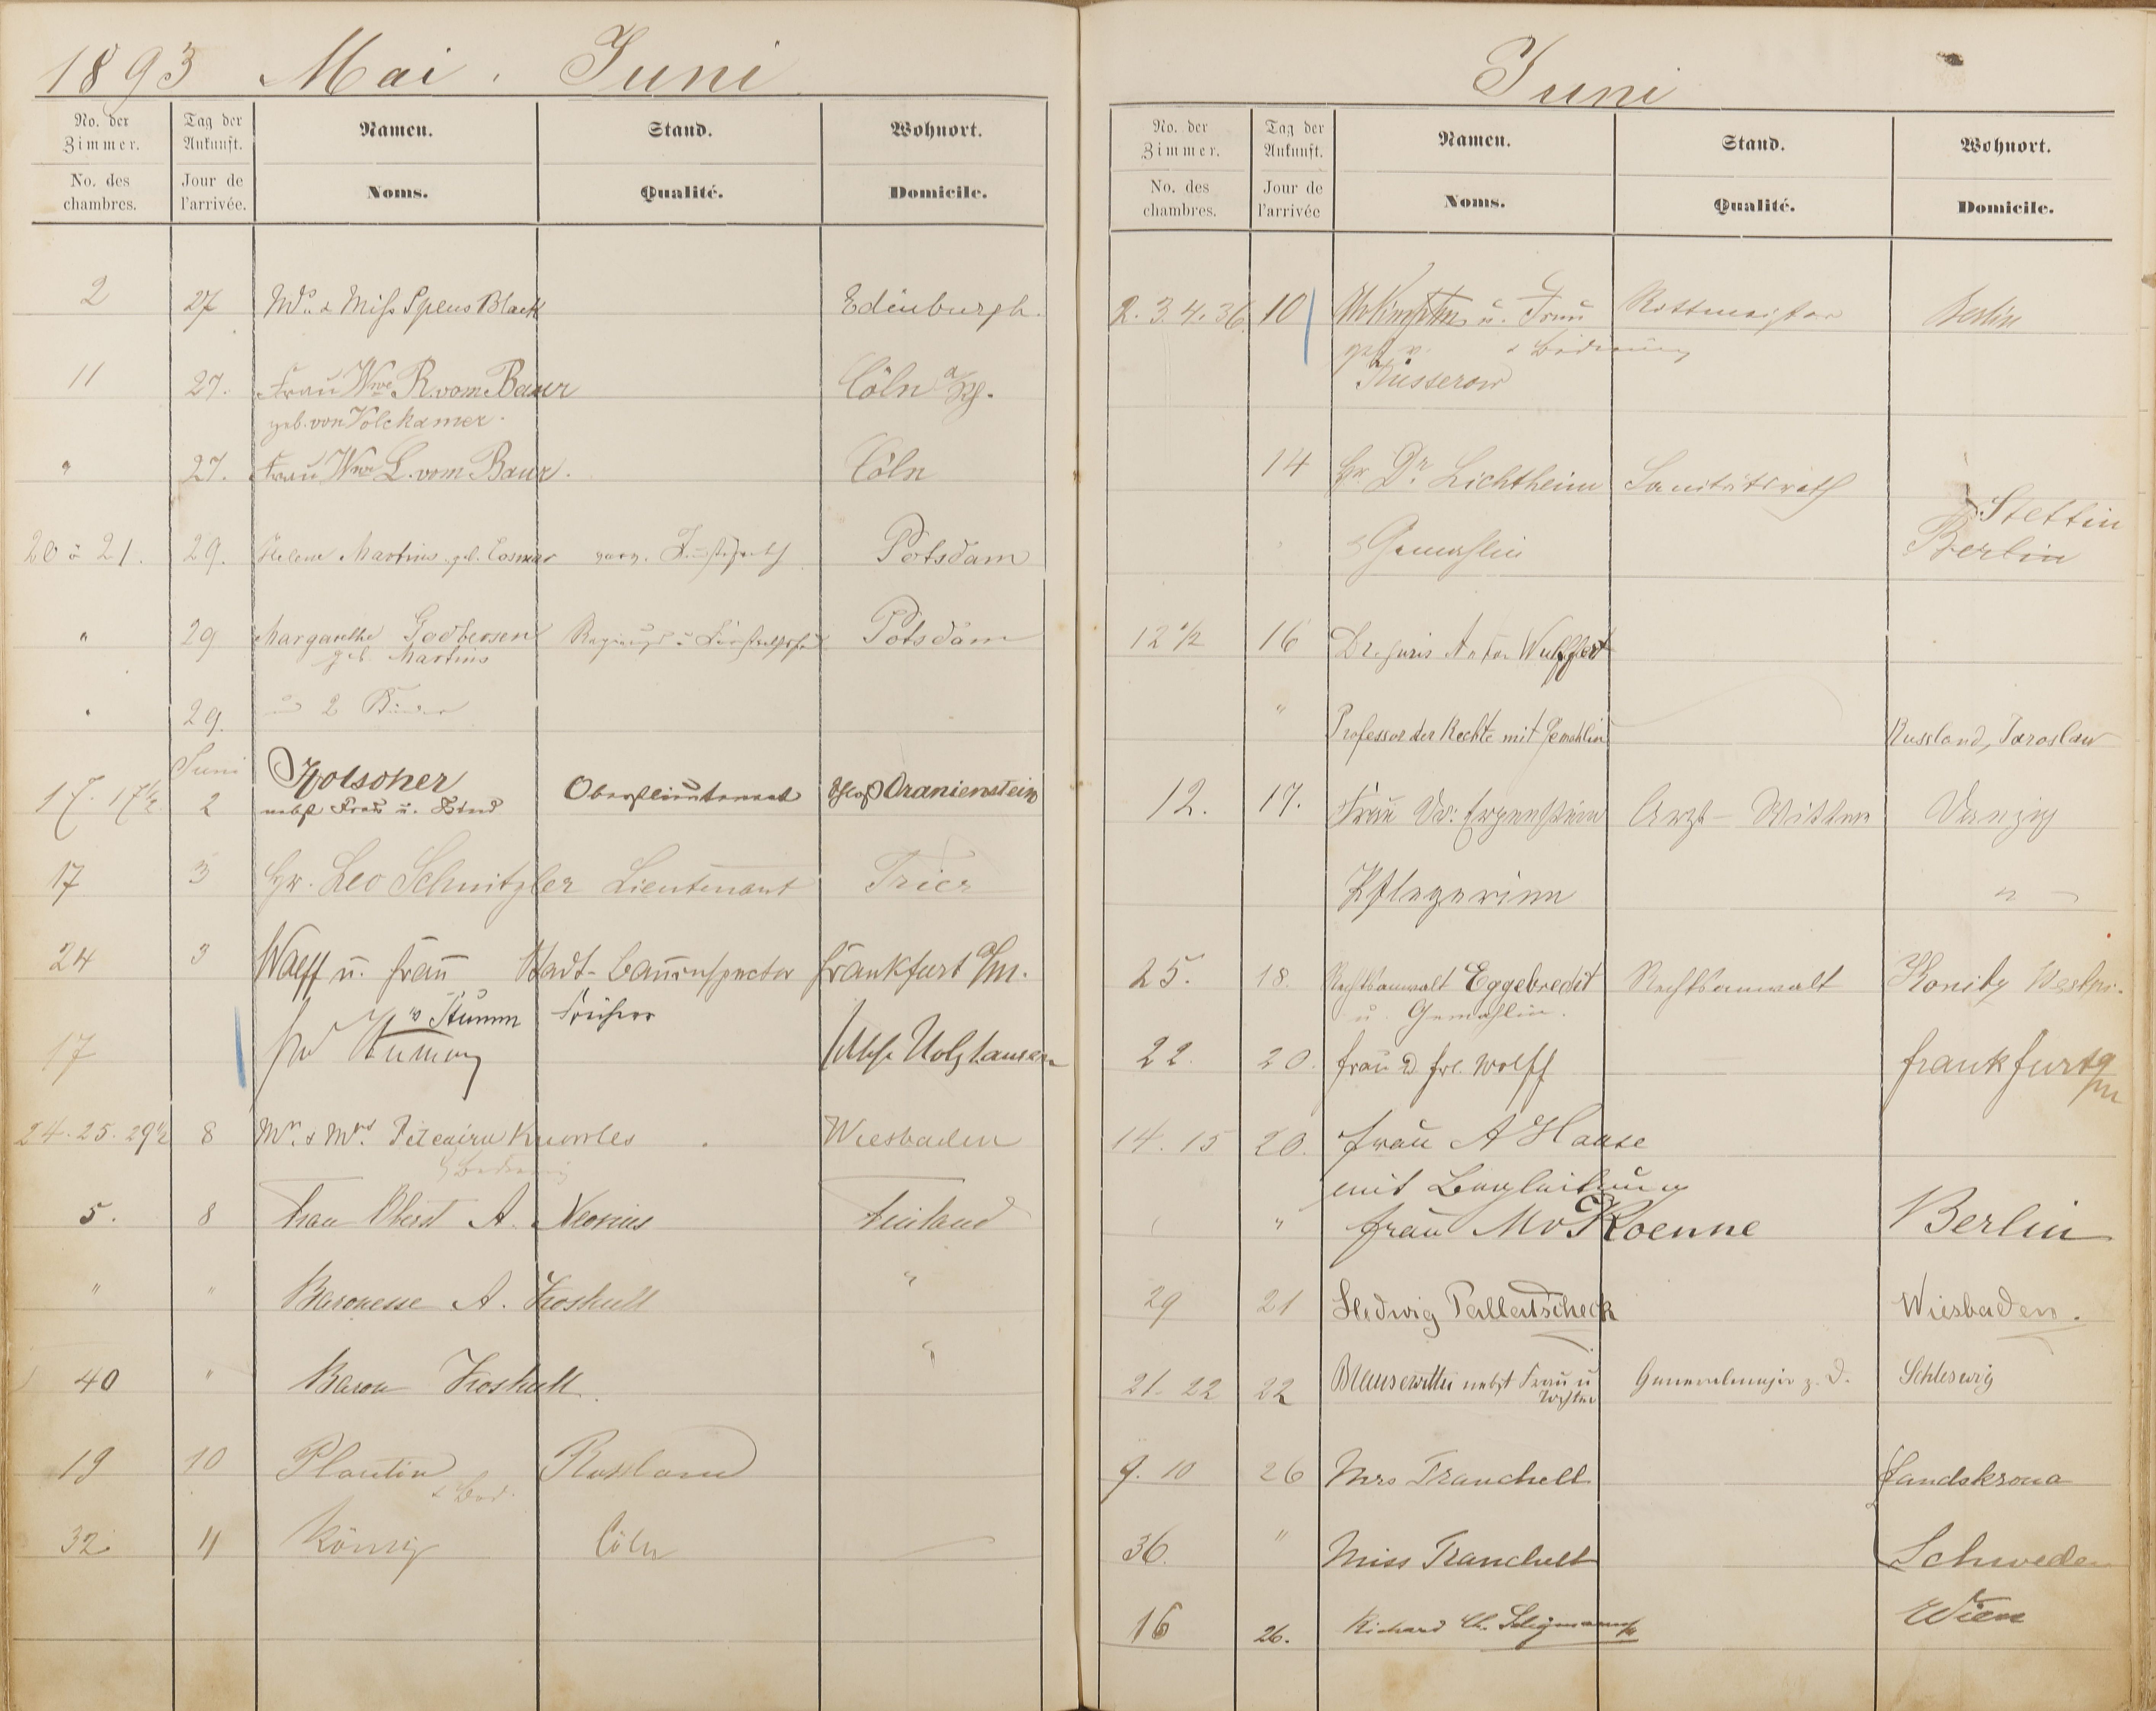 1893 Mai. Juni
No. der Zimmer. Tag der Ankunft. Namen. Stand. Wohnort.
No. des chambres. Jour de l'arrivée. Noms. Qualité. Domicile.
2 27 Mrs. & Miss Spens Black Edinburgh.
11 27. Frau Wwe R. vom Baur Cöln a/Rh.
geb. von Volckamer.
" 27. Frau Wwe L. vom Baur. Cöln
20 u 21. 29. Helene Martins geb. Cosmar Potsdam
" 29 Margarethe Godbersen Potsdam
geb. Martins
29. u 2 Kinder
Juni
17. 17½ 2 Kolscher Oberstlieutenant Schloß Oranienstein
nebst Frau u. Kind
17 3 Hr. Leo Schnitzler Lieutenant Trier
24 3 Wolff u. Frau Stadt-Bauinspector Frankfurt a/M.
v Stumm Freiherr
17 Schloß Holzhausen
24. 25. 29½ 8 Mr. & Mrs. Pitcairn Knowles Wiesbaden
& Bedienung
5. 8 Frau Oberst A. Neovius Finland
" " Baronesse A. Koskull "
40 " Baron Koskull "
19 10 Plautin Russland
& Bed.
32 11 König Cöln
Juni
No. der Zimmer. Tag der Ankunft. Namen. Stand. Wohnort.
No. des chambres. Jour de l'arrivée Noms. Qualité. Domicile.
2. 3. 4. 36 10 u. Frau Rittmeister Berlin
geb. v. & Bedienung
Kusserow
14 Hr. Dr. Lichtheim Sanitätsrath
Stettin
& Gemahlin Berlin
12½ 16 Dr. juris Anton Wulffert
" Professor der Rechte mit Gemahlin Russland, Jaroslaw
12. 17. Frau Dr. Arzt-Wittwe Danzig
Pflegerinn "
25. 18. Rechtsanwalt Eggebrecht Rechtsanwalt Konitz Westpr.
u. Gemahlin.
22. 20. Frau u. Frl. Wolff Frankfurt a/M
14. 15 20. Frau A Haase
mit Begleitung
" Frau M v Roenne Berlin
29 21 Hedwig Perlletscheck Wiesbaden.
21. 22 22 nebst Frau u Tochter Generalmajor z. D. Schleswig
9. 10 26 Mrs Tranchell Landskrona
36. " Miss Tranchell Schweden
16 26. Richard Ch. Seligmann Wien